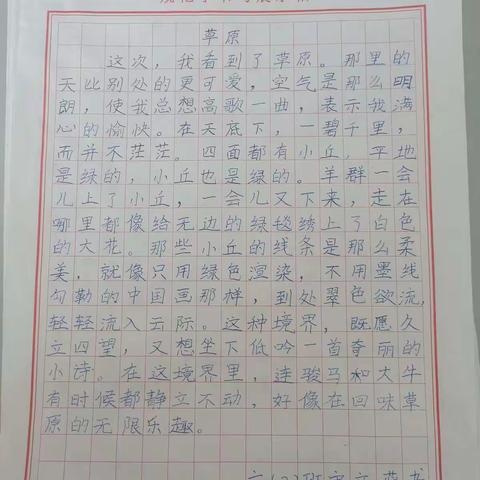 草原
这次，我看到了草原。那里的
天比别处的更可爱，空气是那么明
朗，使我总想高歌一曲，表示我满
心的愉快。在天底下，一碧千里，
而并不茫茫。四面都有小丘，平地
是绿的，小丘也是绿的。羊群一会
儿上了小丘，一会儿又下来，走在
哪里都像给无边的绿毯绣上了白色
的大花。那些小丘的线条是那么柔
美，就像只用绿色渲染，不用墨线
勾勒的中国画那样，到处翠色欲流，
轻轻流入云际。这种境界，既愿久
立四望，又想坐下低吟一首奇丽的
小诗。在这境界里，连骏马和大牛
有时候都静立不动，好像在回味草
原的无限乐趣。